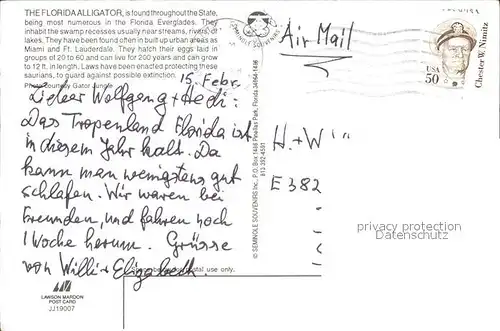 THE FLORIDA ALLIGATOR, is found throughout the State,
being most numerous in the Florida Everglades. They
inhabit the swamp recesses usually near streams, rivers, or
lakes. They have been found often in built up urban areas as
Miami and Ft. Lauderdale. They hatch their eggs laid in
groups of 20 to 60 and can live for 200 years and can grow
to 12 ft. in length. Laws have been enacted protecting these
saurians, to guard against possible extinction.
Photo courtesy Gator Jungle
15. Febr.
Lieber Wolfgang + Hedi:
Das Tropenland Florida ist
in diesem Jahr kalt. Da
kann man wenigstens gut
schlafen. Wir waren bei
Freunden, und fahren noch
1 Woche herum. Grüsse
von Willi + Elizabeth.
LAWSON MARDON
POST CARD
JJ19007
© SEMINOLE SOUVENIRS Inc., P.O. Box 1486 Pinellas Park, Florida 34664-1486
813-392-4591
SEMINOLE SOUVENIRS
Air Mail
USA
50
Chester W. Nimitz
H. + W
E 382
privacy protection
Datenschutz